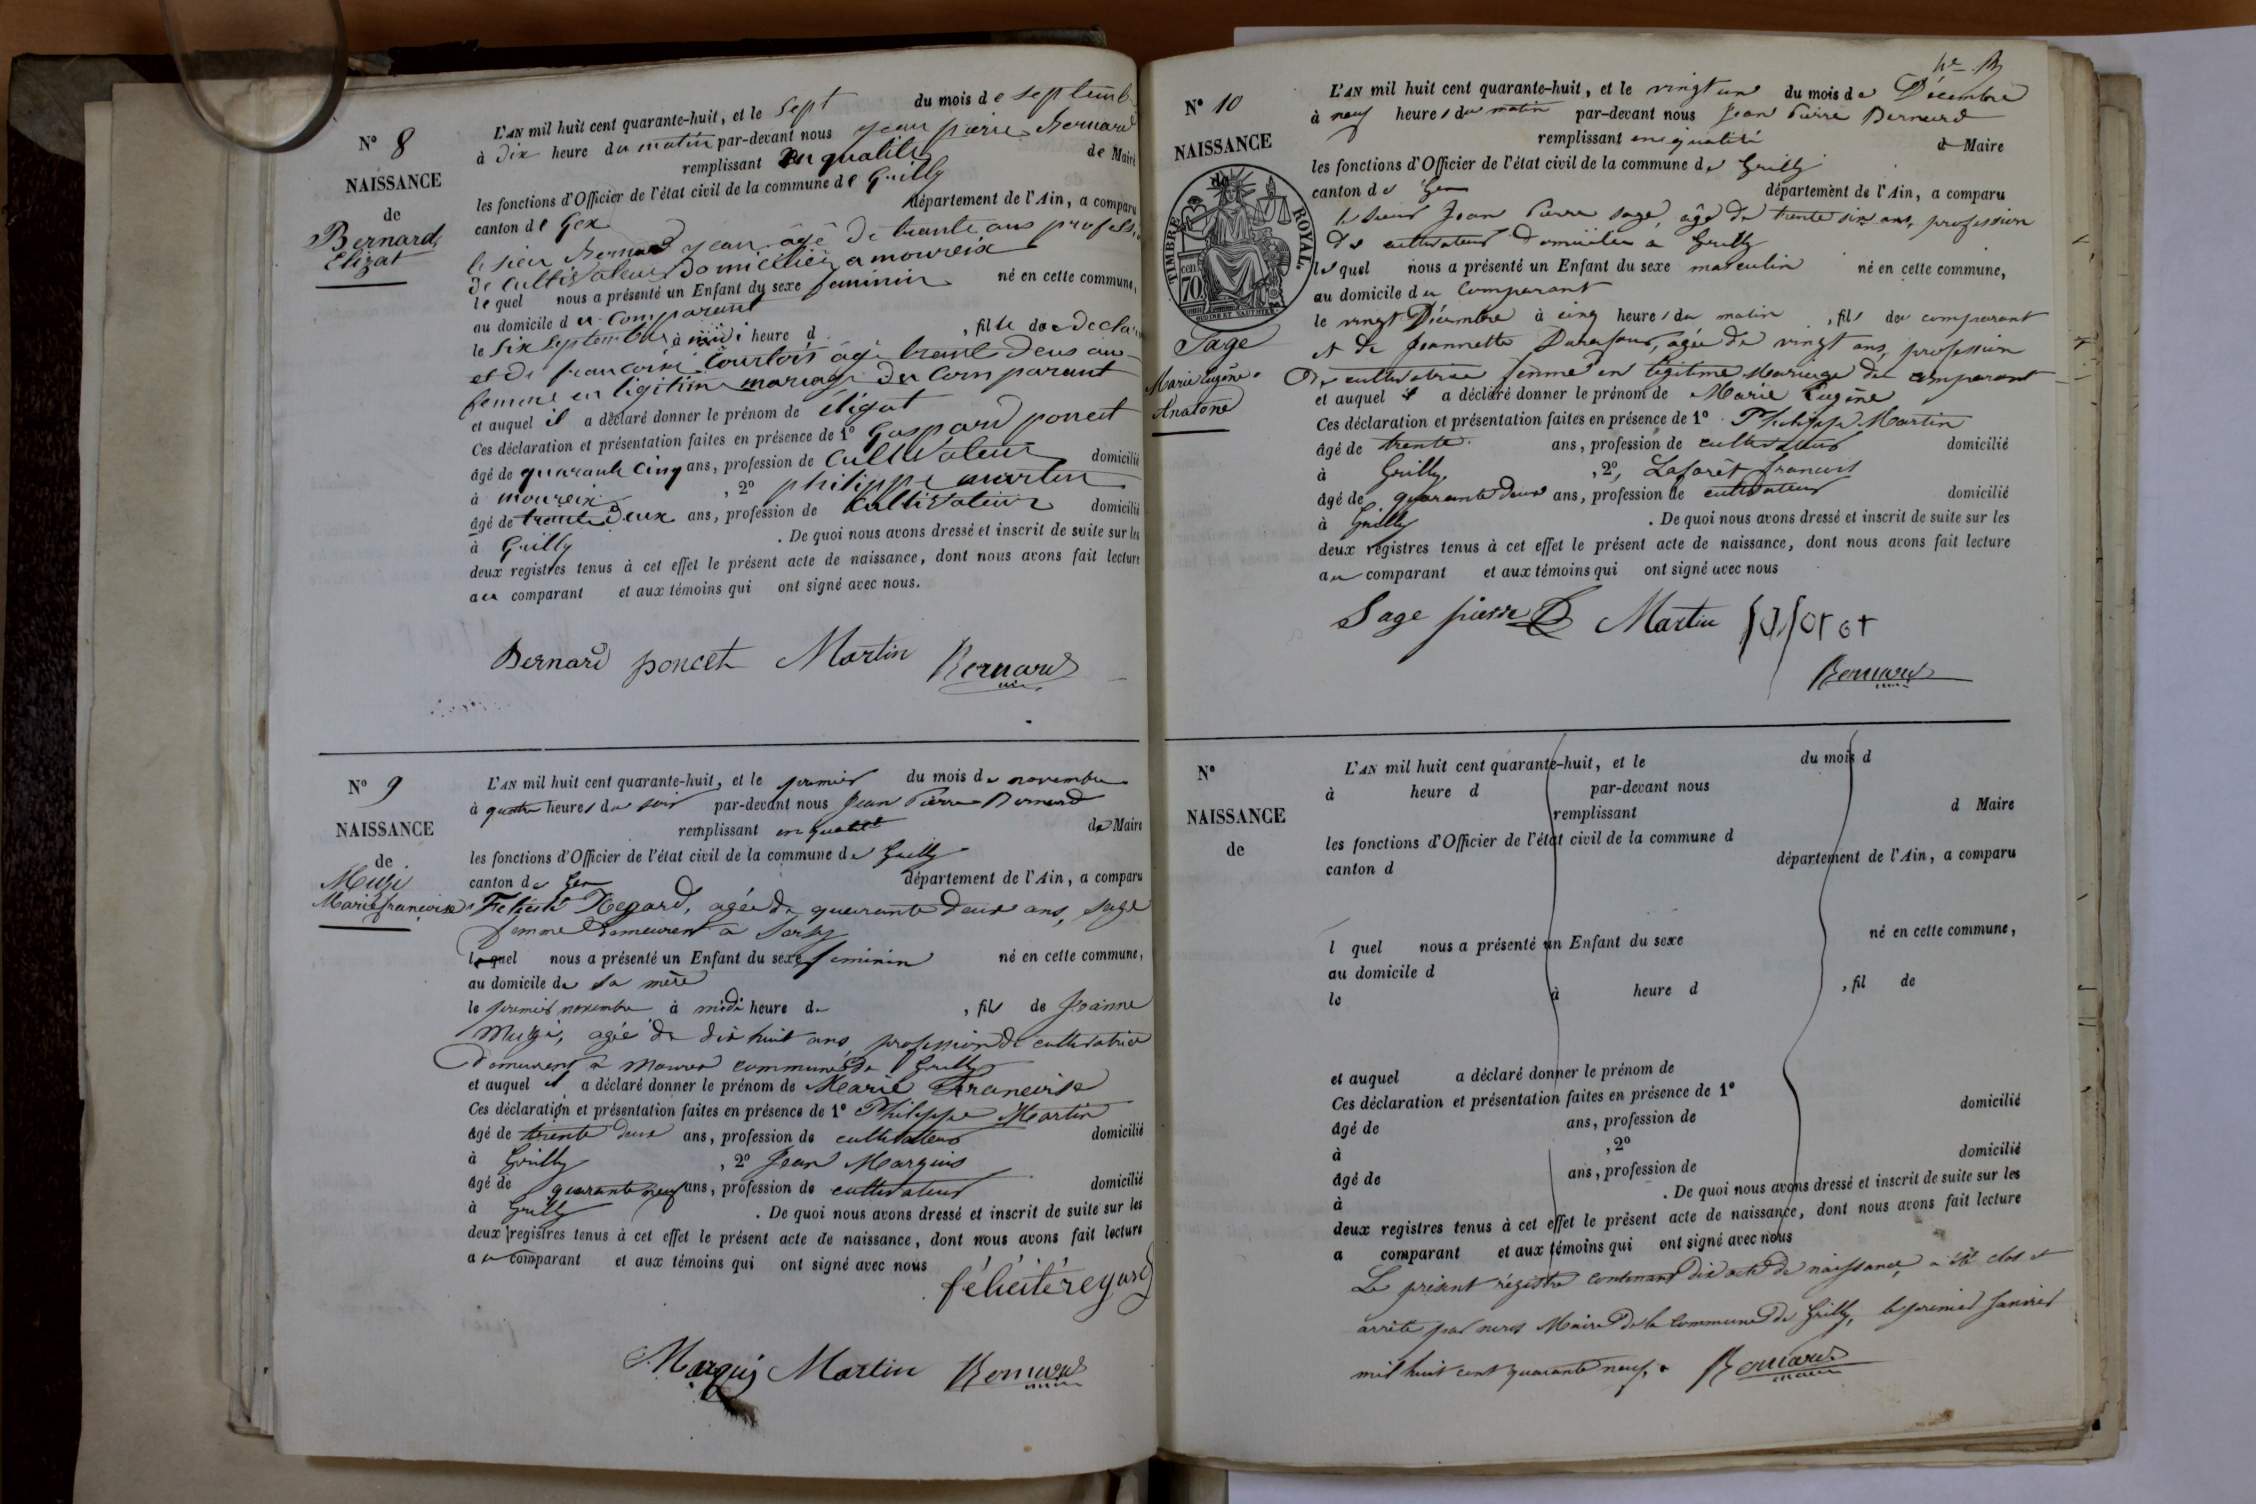 N° 8
NAISSANCE
de
Bernard
Elizat
L'AN mil huit cent quarante-huit, et le sept du mois de septemb
à dix heure du matin par-devant nous jean pierre Bernard
remplissant en qualité de Maire
les fonctions d'Officier de l'état civil de la commune de Grilly
canton de Gex département de l'Ain, a comparu
le sieur Bernard jean âgé de trante ans profess
de cultivateur domicilié a moureix
lequel nous a présenté un Enfant du sexe feminin né en cette commune,
au domicile du comparant
le six septembre à midi heure d , fille de declar
et de francoise Courtois âgé trante deus ans
femme en ligitime mariage du comparant
et auquel il a déclaré donner le prénom de éligat
Ces déclaration et présentation faites en présence de 1° Gaspard poncet
âgé de quarante cinq ans, profession de cultivateur domicilié
à moureix , 2° philippe martin
âgé de trante deux ans, profession de cultivateur domicilié
à Grilly . De quoi nous avons dressé et inscrit de suite sur les
deux registres tenus à cet effet le présent acte de naissance, dont nous avons fait lecture
au comparant et aux témoins qui ont signé avec nous.
Bernard poncet Martin Bernard
N° 9
NAISSANCE
de
Marie françoise
L'AN mil huit cent quarante-huit, et le premier du mois de novembre
à quatre heures du soir par-devant nous Jean Pierre Bernard
remplissant en qualité de Maire
les fonctions d'Officier de l'état civil de la commune de Grilly
canton de Gex département de l'Ain, a comparu
Felicité Regard, agée de quarante deux ans, sage
femme demeurent a
lequel nous a présenté un Enfant du sexe feminin né en cette commune,
au domicile de sa mère
le premier novembre à midi heure d , fils de Jeanne
agée de dix huit ans, profession de cultivatrice
demeurent a Mourex commune de Grilly
et auquel il a déclaré donner le prénom de Marie Francoise
Ces déclaration et présentation faites en présence de 1° Philippe Martin
âgé de trente deux ans, profession de cultivateur domicilié
à Grilly , 2° Jean Marquis
âgé de quarante neuf ans, profession de cultivateur domicilié
à Grilly . De quoi nous avons dressé et inscrit de suite sur les
deux registres tenus à cet effet le présent acte de naissance, dont nous avons fait lecture
au comparant et aux témoins qui ont signé avec nous
félicité regard
Marquis Martin Bernard
N° 10
NAISSANCE
de
TIMBRE ROYAL.
cent. 70
Sage
Marie Eugène
Anatone
L'AN mil huit cent quarante-huit, et le vingt un du mois de Décembre
à neuf heures du matin par-devant nous Jean Pierre Bernard
remplissant en qualité d Maire
les fonctions d'Officier de l'état civil de la commune de Grilly
canton de Gex département de l'Ain, a comparu
le sieur Jean Pierre Sage, âgé de trente six ans, profession
de cultivateur domicilié a Grilly
lequel nous a présenté un Enfant du sexe masculin né en cette commune,
au domicile du comparant
le vingt Décembre à cinq heures du matin , fils du comparant
et de Jeannette agée de vingt ans, profession
de cultivatrice femme en légitime mariage du comparant
et auquel il a déclaré donner le prénom de Marie Eugène
Ces déclaration et présentation faites en présence de 1° Philippe Martin
âgé de trente ans, profession de cultivateur domicilié
à Grilly , 2° Laforêt francois
âgé de quarante deux ans, profession de cultivateur domicilié
à Grilly . De quoi nous avons dressé et inscrit de suite sur les
deux registres tenus à cet effet le présent acte de naissance, dont nous avons fait lecture
au comparant et aux témoins qui ont signé avec nous
Sage pierre Martin
Bernard
N°
NAISSANCE
de
L'AN mil huit cent quarante-huit, et le du mois d
à heure d par-devant nous
remplissant d Maire
les fonctions d'Officier de l'état civil de la commune d
canton d département de l'Ain, a comparu
l quel nous a présenté un Enfant du sexe né en cette commune,
au domicile d
le à heure d , fil de
et auquel a déclaré donner le prénom de
Ces déclaration et présentation faites en présence de 1°
âgé de ans, profession de domicilié
à , 2°
âgé de ans, profession de domicilié
à . De quoi nous avons dressé et inscrit de suite sur les
deux registres tenus à cet effet le présent acte de naissance, dont nous avons fait lecture
a comparant et aux témoins qui ont signé avec nous
Le présent régistre contenant dix acte de naissance, a été clos et
arrêté par nous Maire de la Commune de Grilly, le premier Janvier
mil huit cent quarante neuf. Bernard
maire